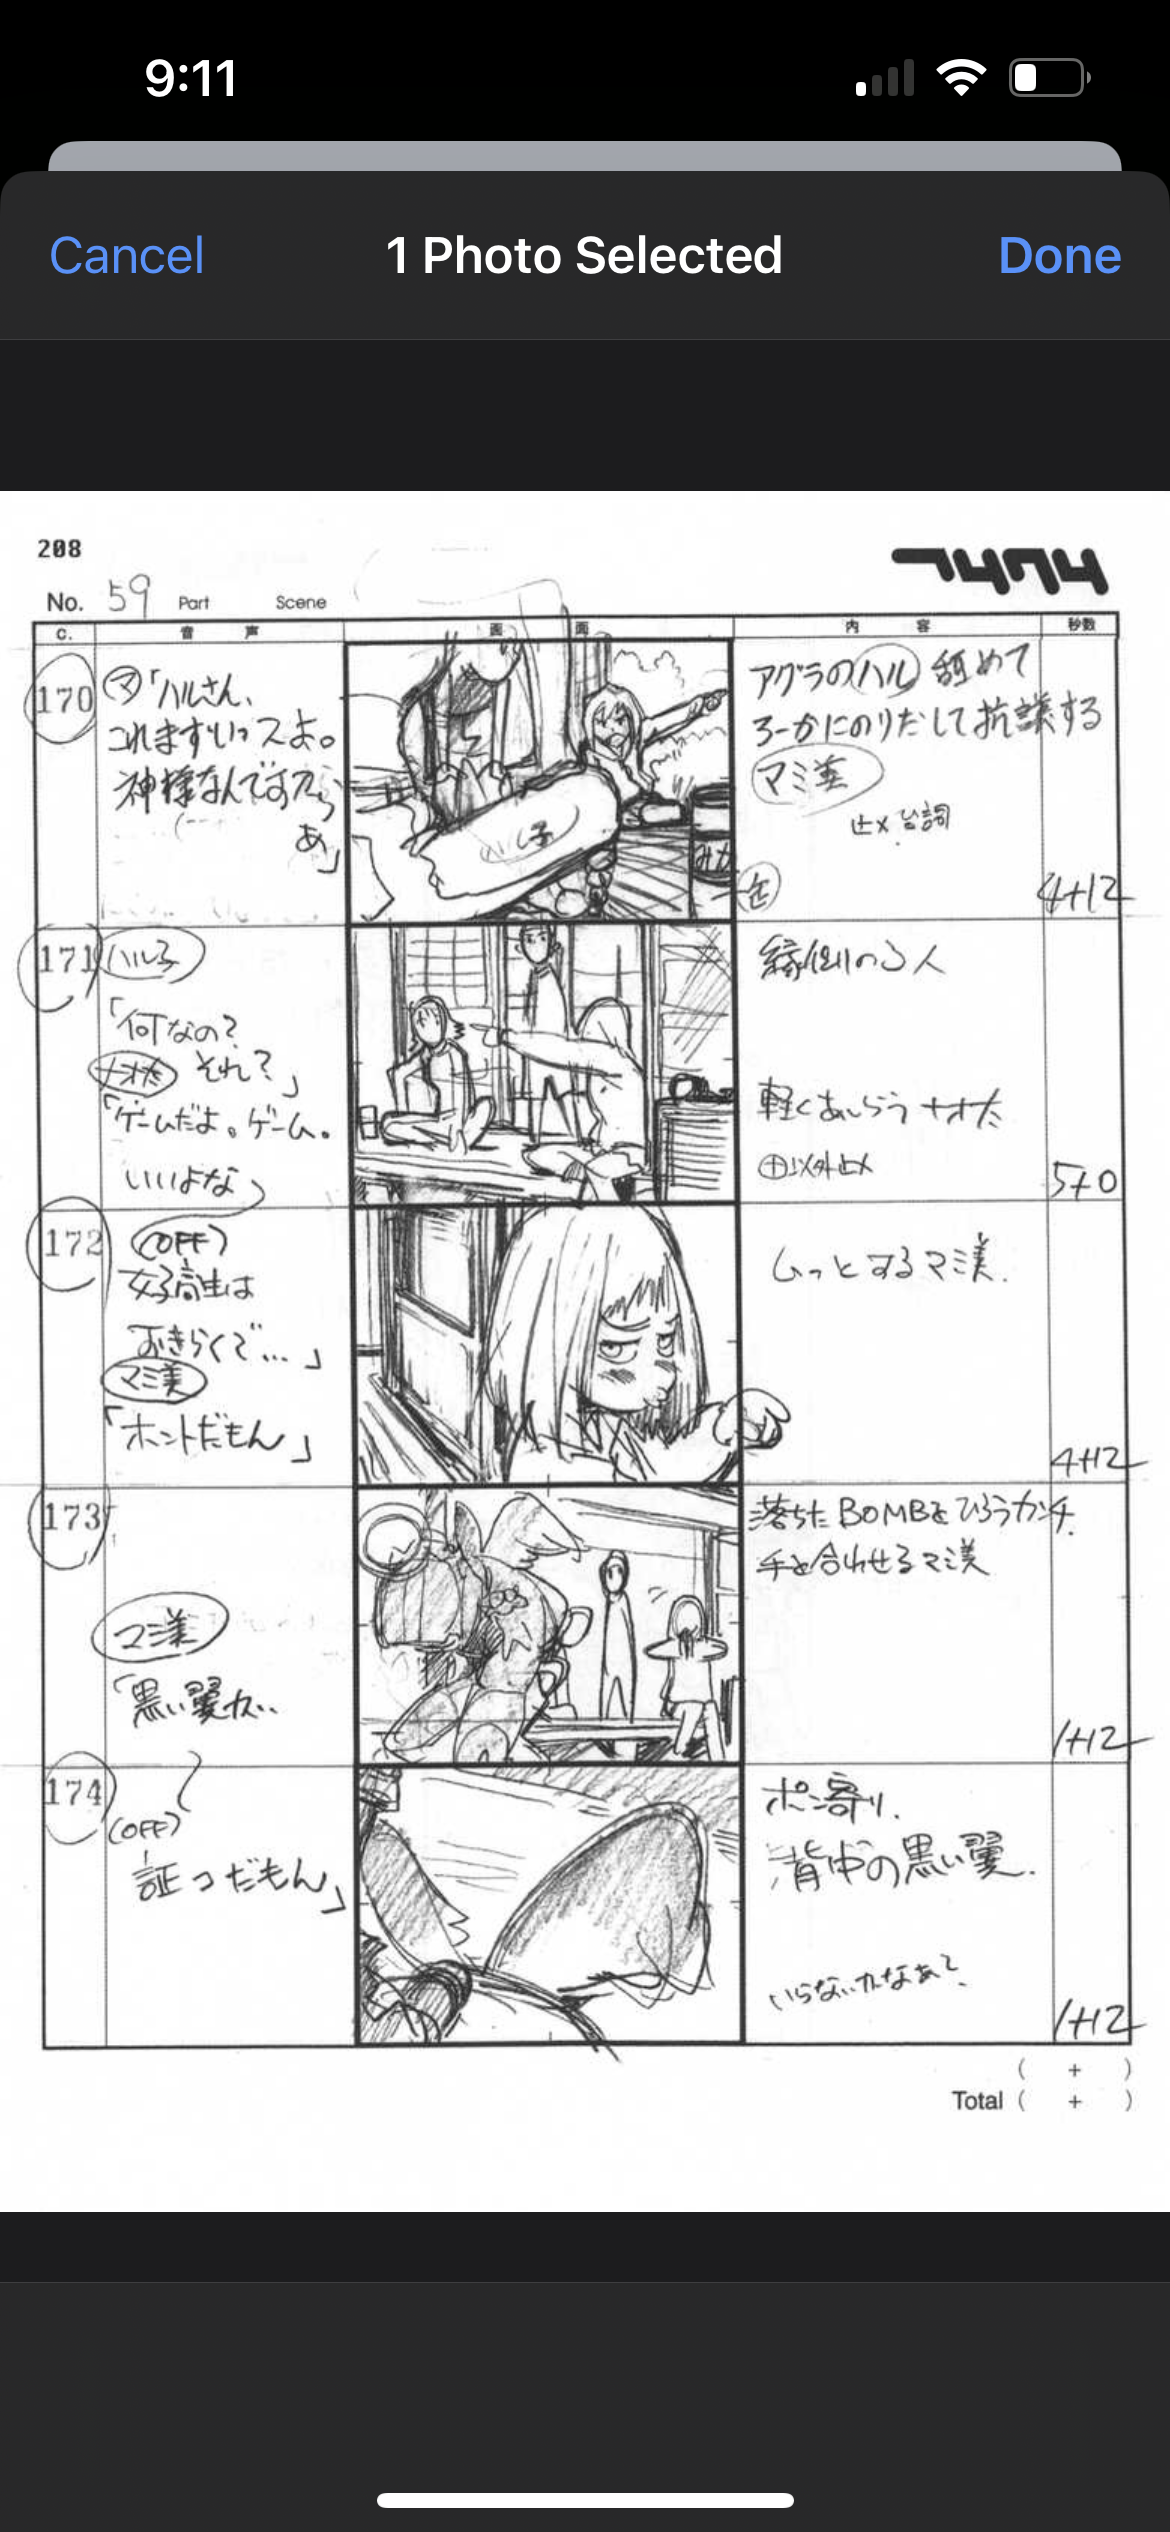 9:11
Cancel
1 Photo Selected
Done
208
フリクリ
No. 59 Part Scene
c. 音 声 画 面 内 容 秒数
170
マ「ハルさん、
これまずいっスよ。
神様なんですから
あ」
ハル子
アグラのハル
舐めて
ろーかにのりだして抗議する
マミ美
止メ 台詞
4+12
171
ハル子
「何なの?
それ?」
ナオ太
「ゲームだよ。ゲーム。
いいよな
縁側の3人
軽くあしらうナオ太
以外止メ
5+0
172
(OFF)
女子高生は
おきらくで…」
マミ美
「ホントだもん」
ムっとするマミ美.
4+12
173
マミ美
「黒い翼が…
落ちたBOMBをひろうカンチ.
手を合わせるマミ美
1+12
174
(OFF)
証コだもん」
ポン寄り.
背中の黒い翼.
いらないかなあ?
1+12
( + )
Total ( + )